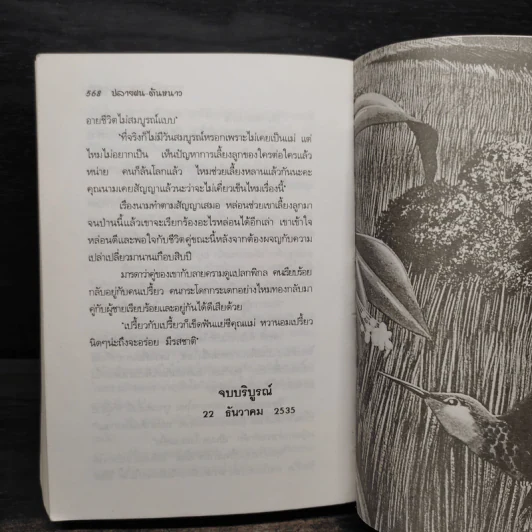 568 ปลายฝน-ต้นหนาว
อายชีวิตไม่สมบูรณ์แบบ"
"ที่จริงก็ไม่มีวันสมบูรณ์หรอกเพราะไม่เคยเป็นแม่ แต่
ไหมไม่อยากเป็น เห็นปัญหาการเลี้ยงลูกของใครต่อใครแล้ว
หน่าย คนก็ล้นโลกแล้ว ไหมช่วยเลี้ยงหลานแล้วกันนะคะ
คุณนามเคยสัญญาแล้วนะว่าจะไม่เคี่ยวเข็นไหมเรื่องนี้"
เรืองนามทำตามสัญญาเสมอ หล่อนช่วยเขาเลี้ยงลูกมา
จนป่านนี้แล้วเขาจะเรียกร้องอะไรหล่อนได้อีกเล่า เขาเข้าใจ
หล่อนดีและพอใจกับชีวิตคู่ขณะนี้หลังจากต้องผจญกับความ
เปล่าเปลี่ยวมานานเกือบสิบปี
มารดาว่าคู่ของเขากับสายครามดูแปลกพิกล คนเรียบร้อย
กลับอยู่กับคนเปรี้ยว คนกระโดกกระเดกอย่างไหมทองกลับมา
คู่กับผู้ชายเรียบร้อยและอยู่กันได้ดีเสียด้วย
"เปรี้ยวกับเปรี้ยวก็เข็ดฟันแย่ซีคุณแม่ หวานอมเปรี้ยว
นิดๆน่ะถึงจะอร่อย มีรสชาติ"
จบบริบูรณ์
22 ธันวาคม 2535